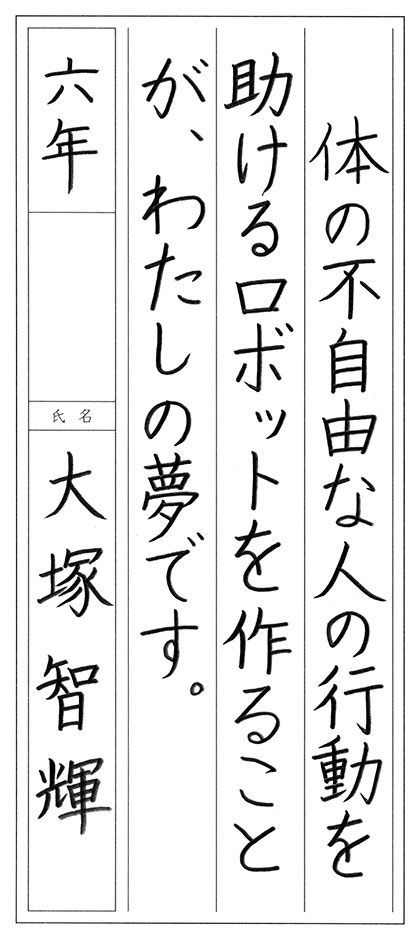 体の不自由な人の行動を
助けるロボットを作ること
が、わたしの夢です。
六年
氏名
大塚智輝